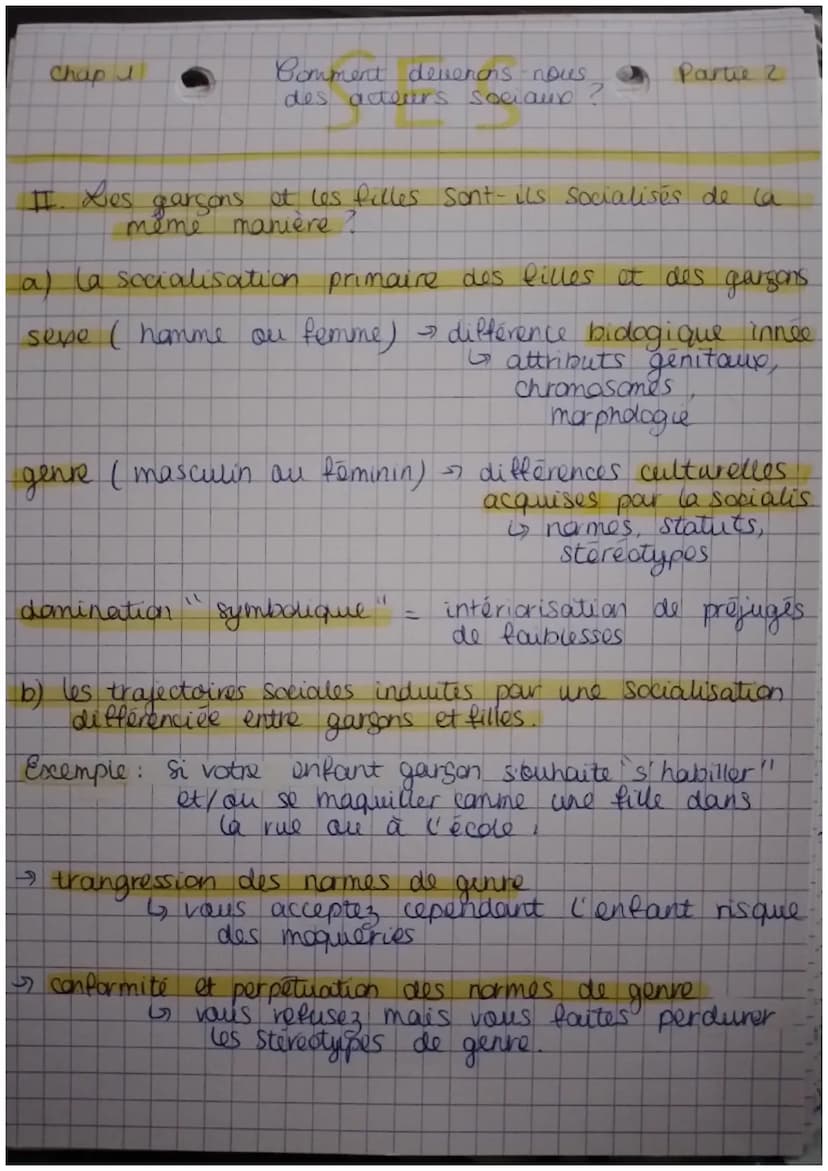 Chap 1 Comment devenons nous Partie 2
des acteurs sociaux ?
SES
II. Les garçons et les filles sont-ils socialisés de la
même manière ?
a) la socialisation primaire des filles et des garçons
sexe ( homme ou femme) → différence biologique innée
↳ attributs génitaux,
chromosomes,
morphologie
genre ( masculin ou féminin) → différences culturelles
acquises par la socialis
↳ normes, statuts,
stéréotypes
domination " symbolique " = intériorisation de préjugés
de faiblesses
b) les trajectoires sociales induites par une socialisation
différenciée entre garçons et filles.
Exemple : Si votre enfant garçon souhaite "s'habiller"
et/ou se maquiller comme une fille dans
la rue ou à l'école,
→ trangression des normes de genre
↳ vous acceptez cependant l'enfant risque
des moqueries
→ conformité et perpétuation des normes de genre
↳ vous refusez mais vous faites perdurer
les stéréotypes de genre.